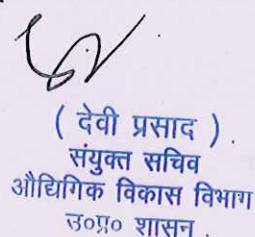 ( देवी प्रसाद ) .
संयुक्त सचिव
औद्यिगिक विकास विभाग
उ०प्र० शासन .